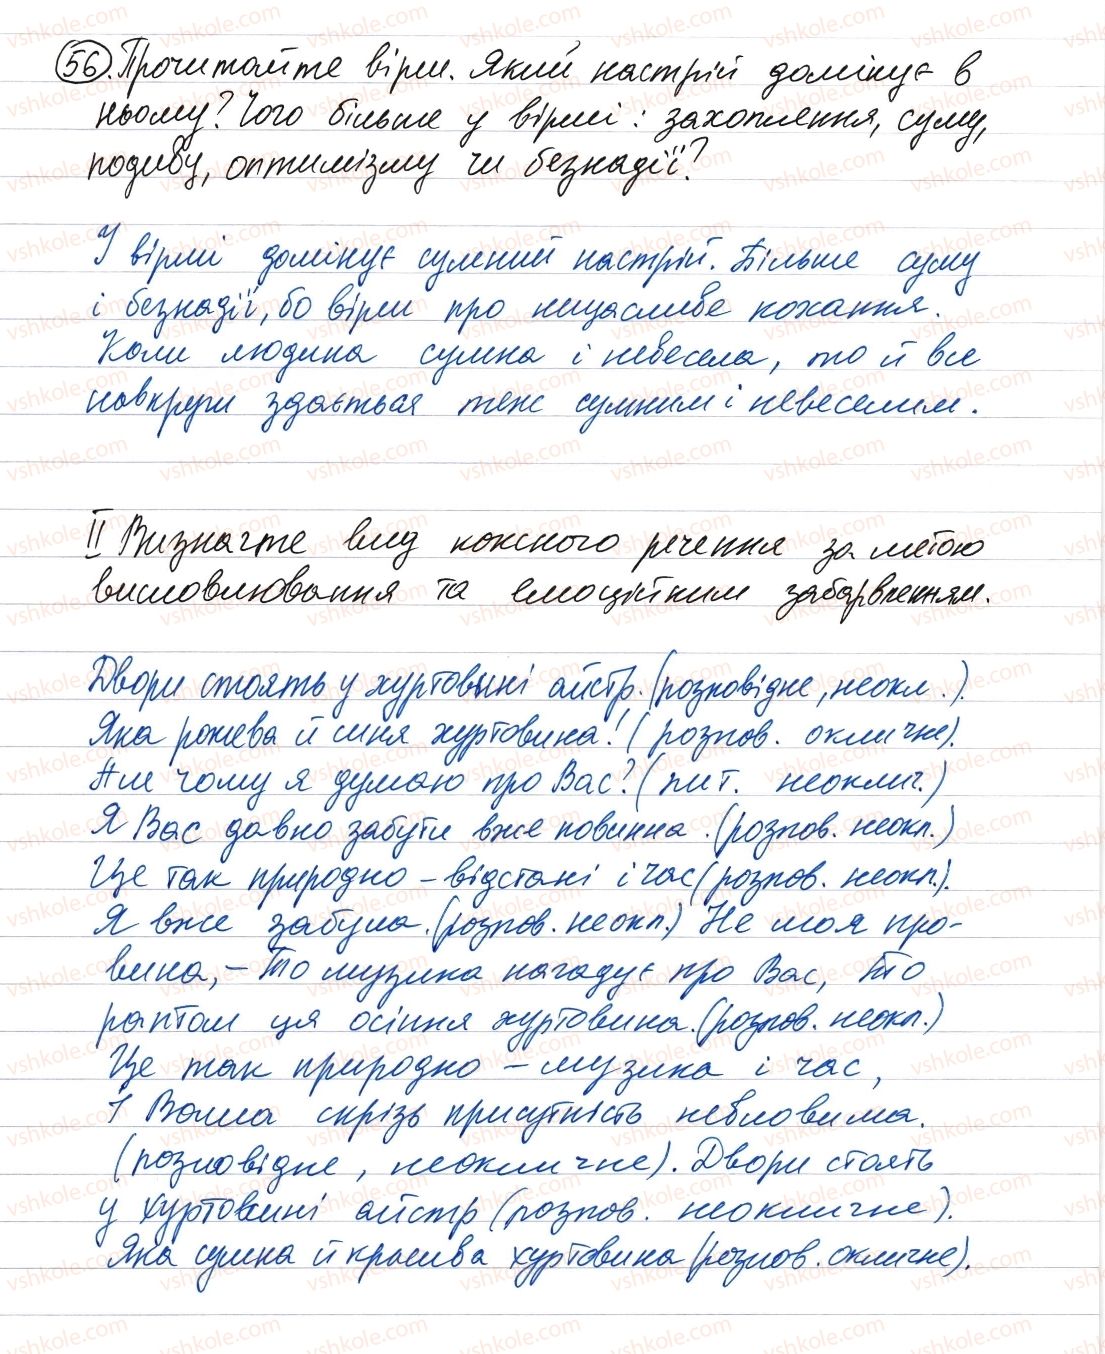 56. Прочитайте вірш. Який настрій домінує в
ньому? Чого більше у вірші: захоплення, суму,
подиву, оптимізму чи безнадії?
У вірші домінує сумний настрій. Більше суму
і безнадії, бо вірш про нещасливе кохання.
Коли людина сумна і невесела, то й все
навкруги здається теж сумним і невеселим.
II Визначте вид кожного речення за метою
висловлювання та емоційним забарвленням.
Двори стоять у хуртовині айстр. (розповідне, неокл.).
Яка рожева й синя хуртовина! (розпов. окличне).
Але чому я думаю про Вас? (пит. неоклич.)
Я Вас давно забути вже повинна. (розпов. неокл.)
Це так природно – відстані і час (розпов. неокл.).
Я вже забула. (розпов. неокл.) Не моя про-
вина, – То музика нагадує про Вас, то
раптом ця осіння хуртовина. (розпов. неокл.)
Це так природно – музика і час,
І Ваша скрізь присутність невловима.
(розповідне, неокличне). Двори стоять
у хуртовині айстр (розпов. неокличне).
Яка сумна й красива хуртовина (розпов. окличне).